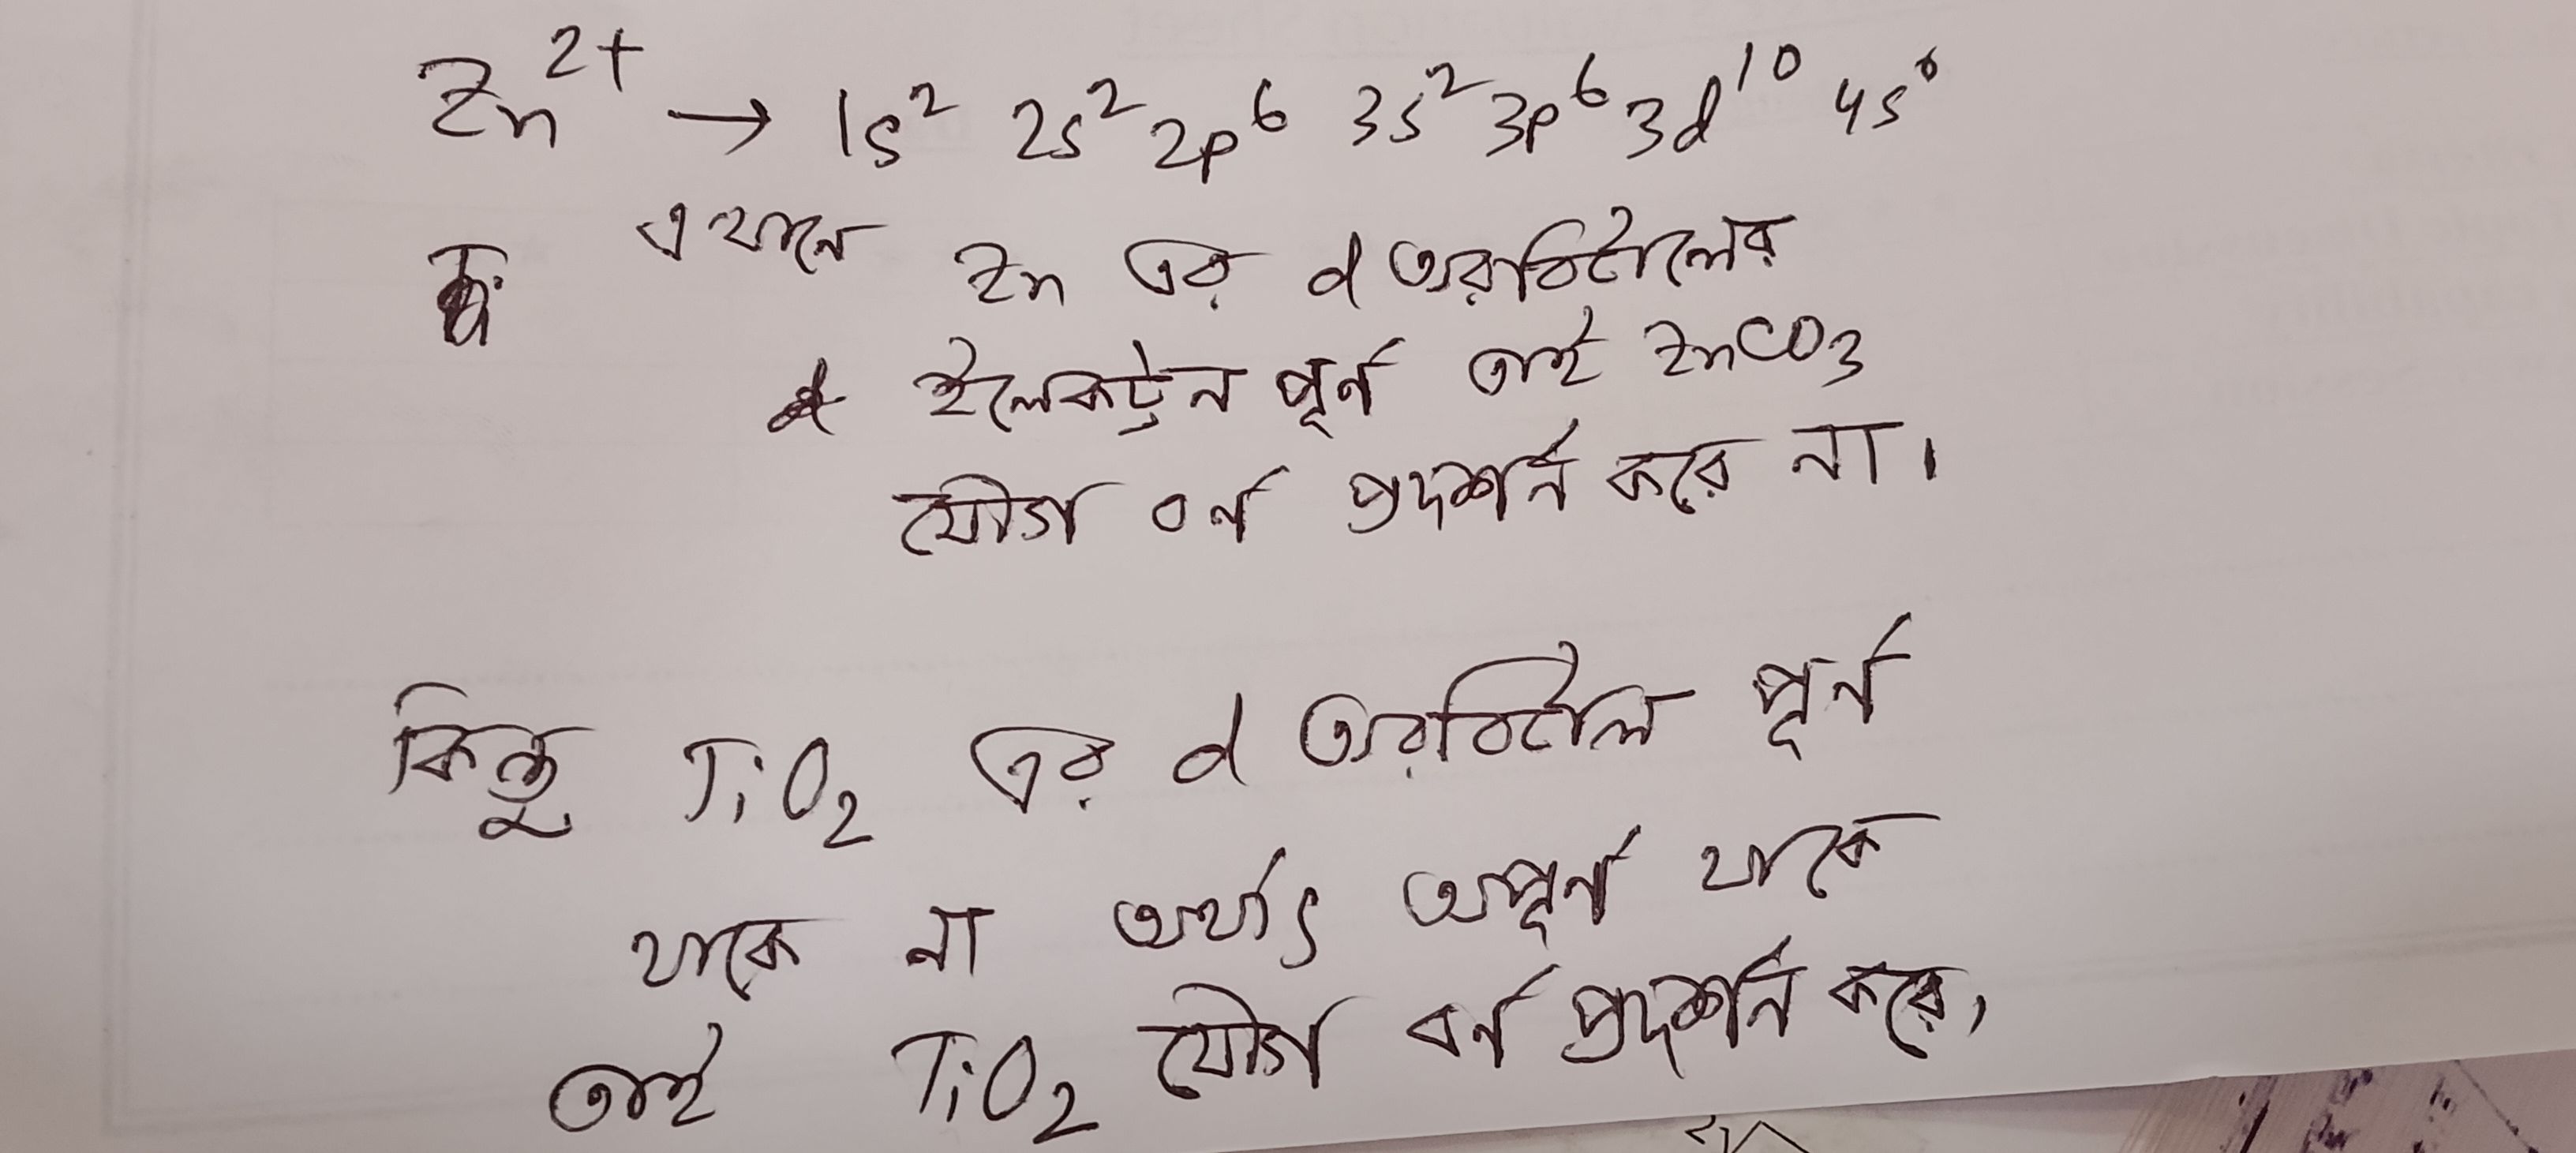 Zn²⁺ → 1s² 2s² 2p⁶ 3s² 3p⁶ 3d¹⁰ 4s⁰
এখানে Zn এর d অরবিটালের
ইলেকট্রন পূর্ন তাই ZnCO₃
যৌগ বর্ন প্রদর্শন করে না।
কিন্তু TiO₂ এর d অরবিটাল পূর্ন
থাকে না অর্থাৎ অপূর্ন থাকে
তাই TiO₂ যৌগ বর্ন প্রদর্শন করে,